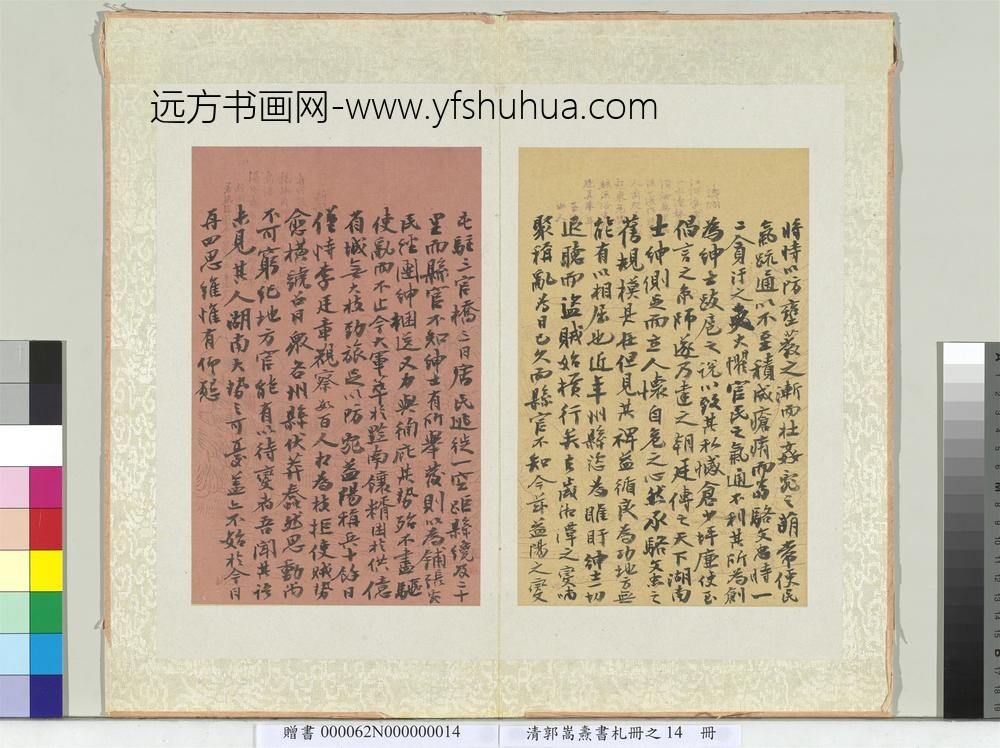 远方书画网-www.yfshuhua.com
時時以防壅蔽之漸而杜姦宄之萌常使民
氣疏通以不至積成瘡痏而當駱文忠時一
二貪汙之大懼官民之氣通不利其所為創
為紳士跋扈之說以致其私憾倉少坪廉使至
倡言之京師遂乃達之朝廷傳之天下湖南
士紳側足而立人懷自危之心然承駱文忠之
舊規模具在但見其裨益循良為功地方無
能有以相屈也近年州縣恣為睢盱紳士一切
退聽而盜賊始橫行矣去歲湘潭之變嘯
聚稱亂為日已久而縣官不知今茲益陽之變
屯駐三官橋三日居民逃徙一空距縣纔及二十
里而縣官不知紳士有所舉發則以為鋪張突
民經團紳捆送又力與徇庇其勢殆不盡驅
使亂而不止今大軍萃於黔南鑲精困於供億
省城無大枝勁旅足以防宛益陽稱兵十餘日
僅恃李廷章觀察百人為枝拒使賊勢
愈橫號召日眾各州縣伏莽蠢然思動而
不可窮絶地方官能有以待變者吾聞其語
未見其人湖南大勢之可憂蓋亦不始於今日
再四思維惟有仰懇
贈書 000062N000000014
清郭嵩燾書札冊之 14 冊